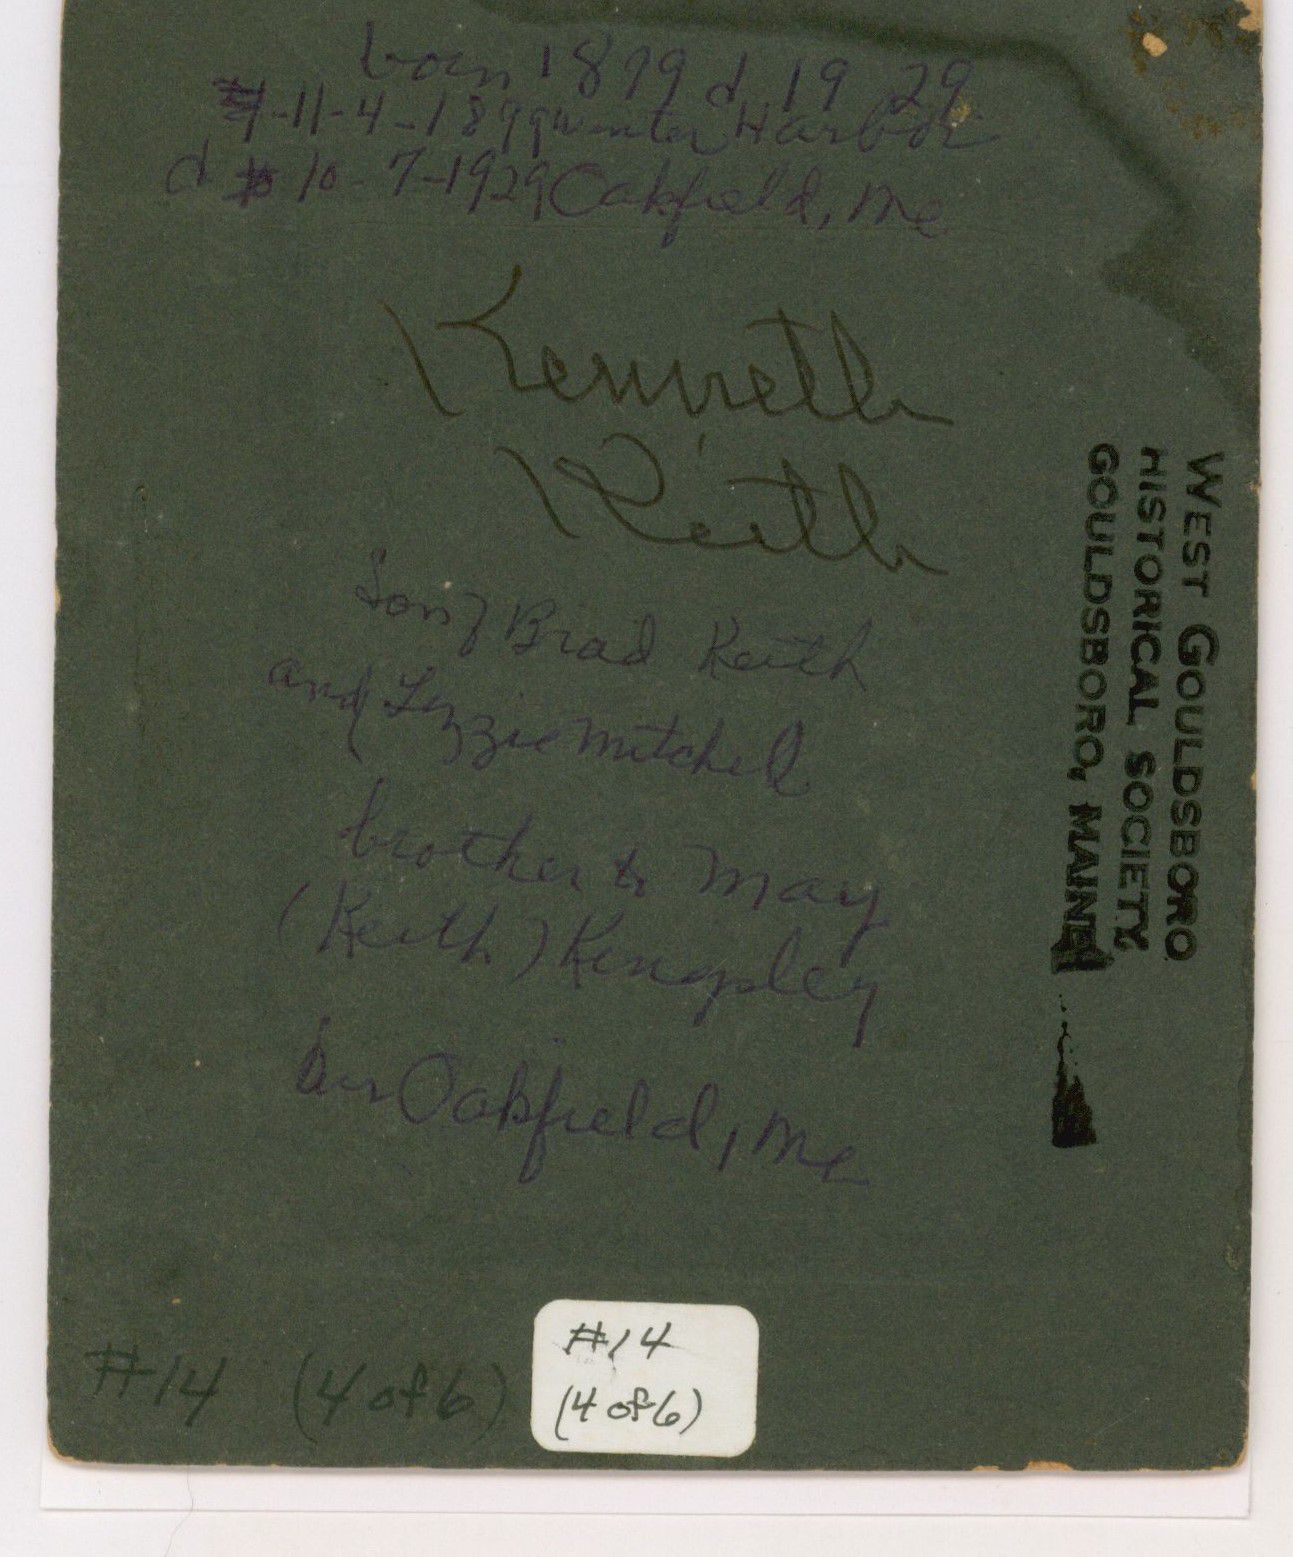 born 1899 d 1929
11-4-1899 Winter Harbor
d 10-7-1929 Oakfield, Me
Kenneth
Keith
Son of Brad Keith
and Lizzie Mitchell
brother to May
(Keith) Kingsley
in Oakfield, Me
#14 (4 of 6)
#14
(4 of 6)
WEST GOULDSBORO
HISTORICAL SOCIETY
GOULDSBORO, MAINE